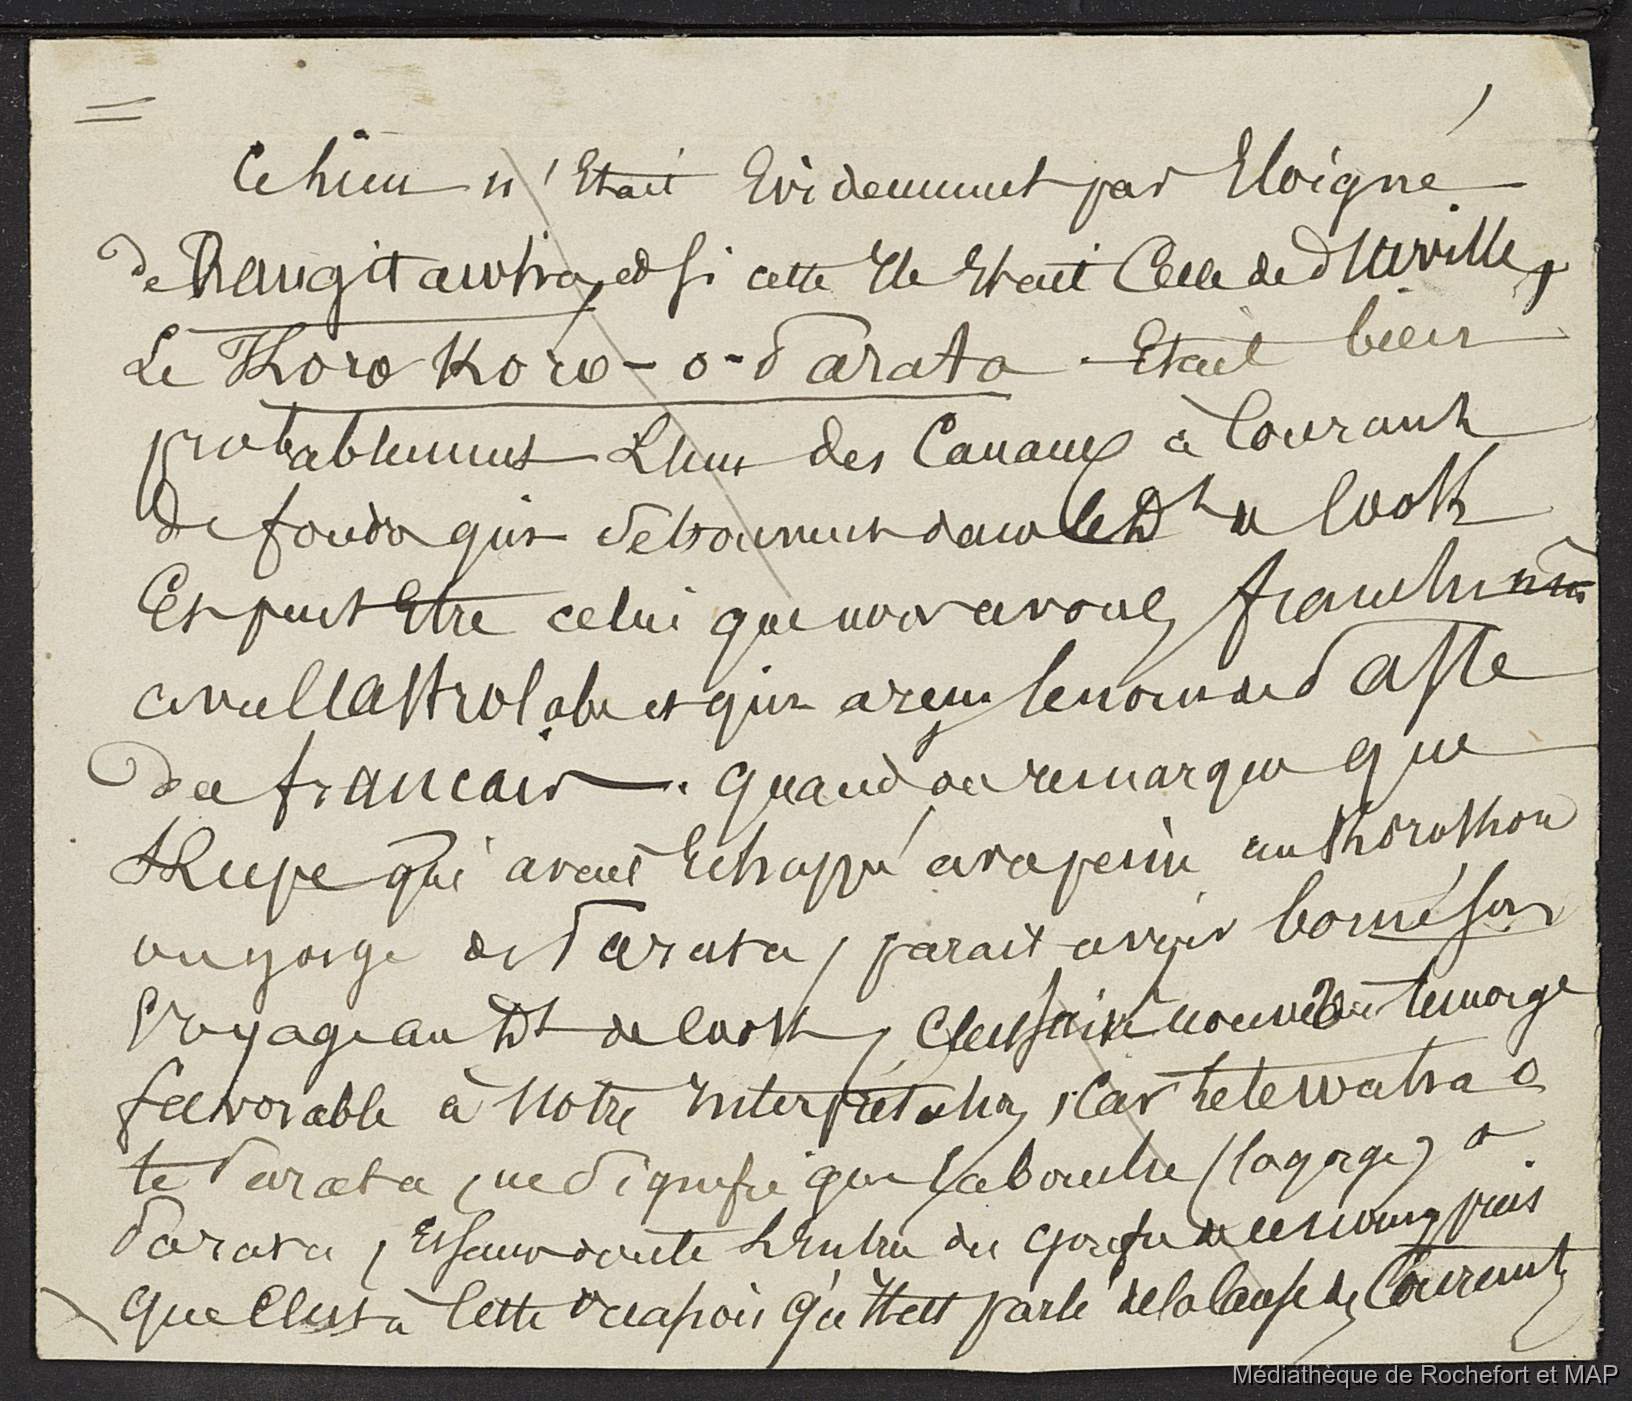 =
Ce lieu n'Etait Evidemment pas Eloigné
de Rangitawhra, et si cette Ile Etait Celle de d'Urville,
Le Koro Koro-o-Parata Etait bien
probablement L'un des Canaux à Courant
de foudre qui se trouvent dans le Dt de Cook
Et peut Etre celui que nous avons franchi
avec L'astrolabe et qui a reçu le nom de Passe
des francais. quand on remarque que
Kupe qui avait Echappé avec peine au Korokoro
ou gorge de Parata, parait avoir borné son
Voyage au Dt de Cook, C'est un temoignage
favorable à Notre Interpretation, Car te waha o
te Parata, ne signifie que la bouche (la gorge) a
Parata, Et sans doute L'Entrée du Gorge de ce nom puis
que C'est à Cette occasion qu'il est parlé de la Cause des Courants
Médiathèque de Rochefort et MAP